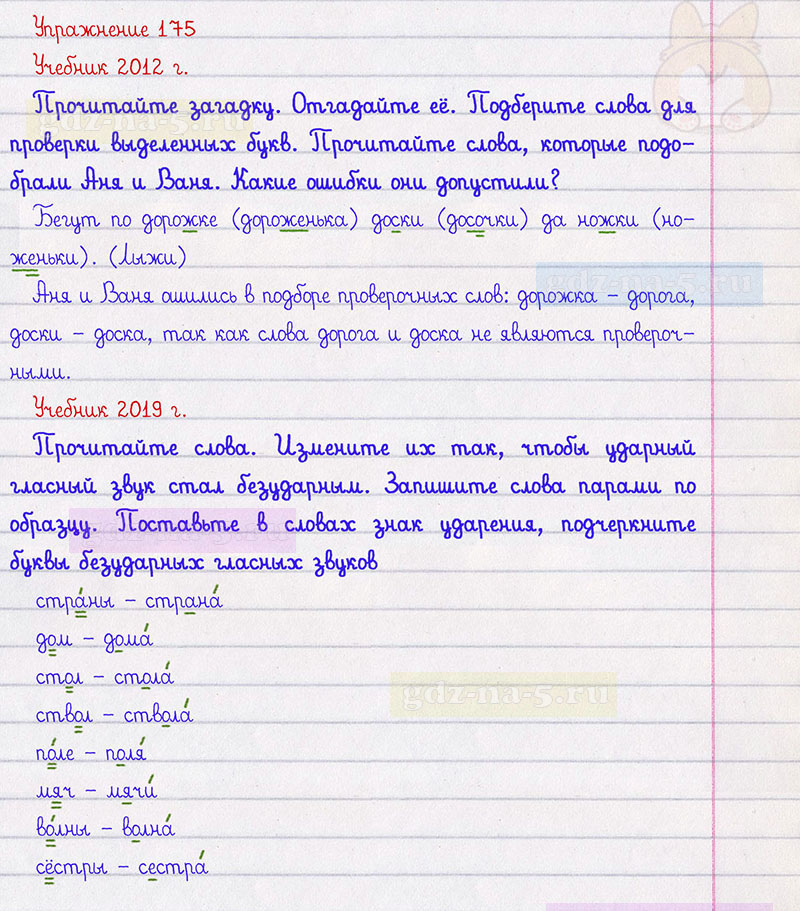 Упражнение 175
Учебник 2012 г.
Прочитайте загадку. Отгадайте её. Подберите слова для
проверки выделенных букв. Прочитайте слова, которые подо-
брали Аня и Ваня. Какие ошибки они допустили?
Бегут по дорожке (дороженька) доски (досочки) да ножки (но-
женьки). (Лыжи)
Аня и Ваня ошились в подборе проверочных слов: дорожка – дорога,
доски – доска, так как слова дорога и доска не являются провероч-
ными.
Учебник 2019 г.
Прочитайте слова. Измените их так, чтобы ударный
гласный звук стал безударным. Запишите слова парами по
образцу. Поставьте в словах знак ударения, подчеркните
буквы безударных гласных звуков
стра́ны – страна́
дом – дома́
стол – стола́
ствол – ствола́
по́ле – поля́
мяч – мячи́
во́лны – волна́
сёстры – сестра́
gdz-na-5.ru
gdz-na-5.ru
gdz-na-5.ru
gdz-na-5.ru